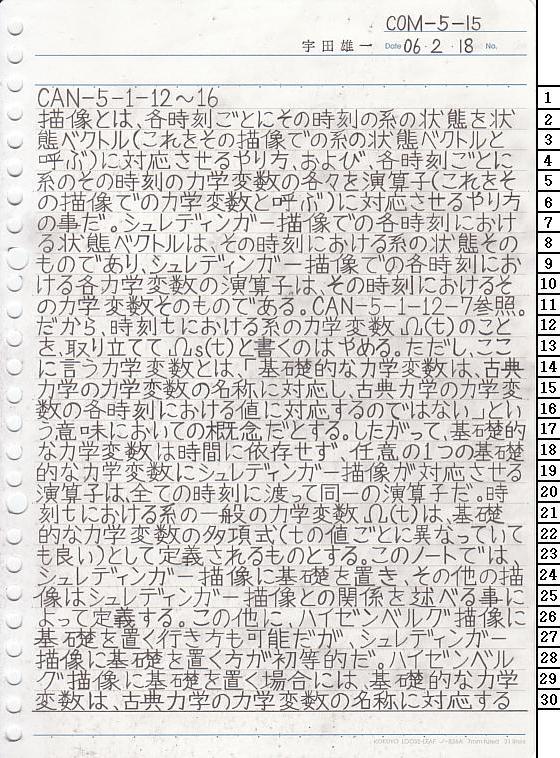 COM-5-15
宇田雄一 Date 06・2・18 No.
CAN-5-1-12～16
描像とは、各時刻ごとにその時刻の系の状態を状
態ベクトル(これをその描像での系の状態ベクトルと
呼ぶ)に対応させるやり方、および、各時刻ごとに
系のその時刻の力学変数の各々を演算子(これをそ
の描像での力学変数と呼ぶ)に対応させるやり方
の事だ。シュレディンガー描像での各時刻におけ
る状態ベクトルは、その時刻における系の状態その
ものであり、シュレディンガー描像での各時刻にお
ける各力学変数の演算子は、その時刻におけるそ
の力学変数そのものである。CAN-5-1-12-7参照。
だから、時刻tにおける系の力学変数Ω(t)のこと
を、取り立ててΩs(t)と書くのはやめる。ただし、ここ
に言う力学変数とは、「基礎的な力学変数は、古典
力学の力学変数の名称に対応し、古典力学の力学変
数の各時刻における値に対応するのではない」とい
う意味においての概念だとする。したがって、基礎的
な力学変数は時間に依存せず、任意の1つの基礎
的な力学変数にシュレディンガー描像が対応させる
演算子は、全ての時刻に渡って同一の演算子だ。時
刻tにおける系の一般の力学変数Ω(t)は、基礎
的な力学変数の多項式(tの値ごとに異なっていて
も良い)として定義されるものとする。このノートでは、
シュレディンガー描像に基礎を置き、その他の描
像はシュレディンガー描像との関係を述べる事に
よって定義する。この他に、ハイゼンベルグ描像に
基礎を置く行き方も可能だが、シュレディンガー
描像に基礎を置く方が初等的だ。ハイゼンベル
グ描像に基礎を置く場合には、基礎的な力学
変数は、古典力学の力学変数の名称に対応する
KOKUYO LOOSE-LEAF ノ-836A 7mm ruled 31 lines
1
2
3
4
5
6
7
8
9
10
11
12
13
14
15
16
17
18
19
20
21
22
23
24
25
26
27
28
29
30